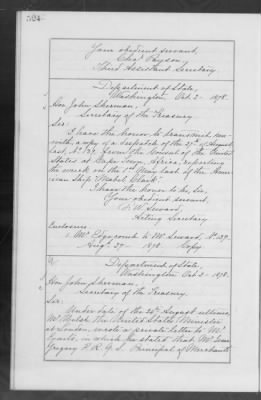 504
Your obedient servant,
Chas. Payson,
Third Assistant Secretary.
Department of State,
Washington, Oct. 2 - 1878.
Hon. John Sherman,
Secretary of the Treasury.
Sir:
I have the honor to transmit here-
with, a copy of a despatch of the 27th of August
last, No. 139, from the Consul of the United
States at Cape Town, Africa, reporting
the wreck on the 1st May last of the Amer-
ican Ship "Mabel Clark."
I have the honor to be, Sir,
Your obedient servant,
F. W. Seward,
Acting Secretary
Enclosure:
Mr. Edgecomb to Mr. Seward, No. 139,
Aug. 27 - 1878. Copy
Department of State,
Washington Oct. 2 - 1878.
Hon. John Sherman,
Secretary of the Treasury.
Sir:
Under date of the 24th August, ultimo,
Mr. Welsh, the United States Minister
at London, wrote a private letter to Mr.
Evarts, in which he stated that Mr.
Gregory F. R. G. S. Principal of Merchants